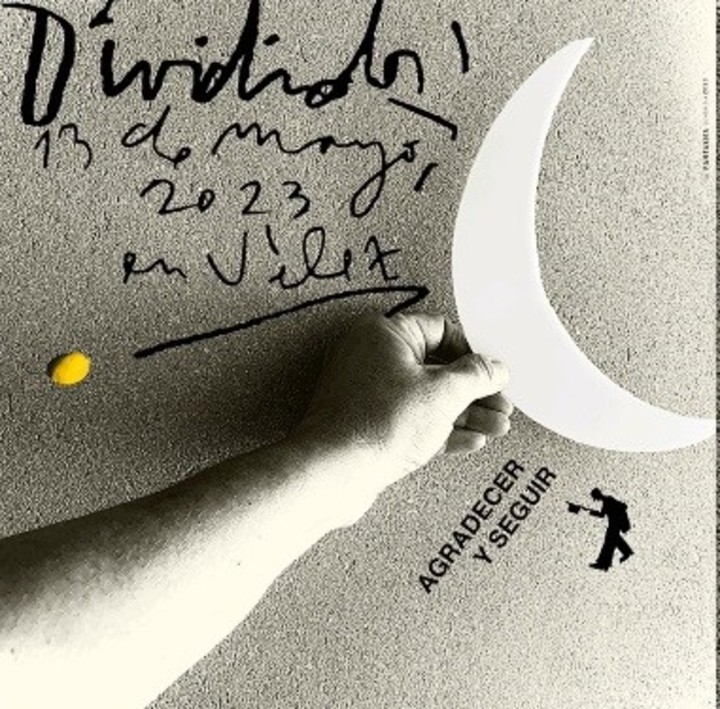 Divididos,
13 de mayo,
2023
en Vélez
AGRADECER
Y SEGUIR